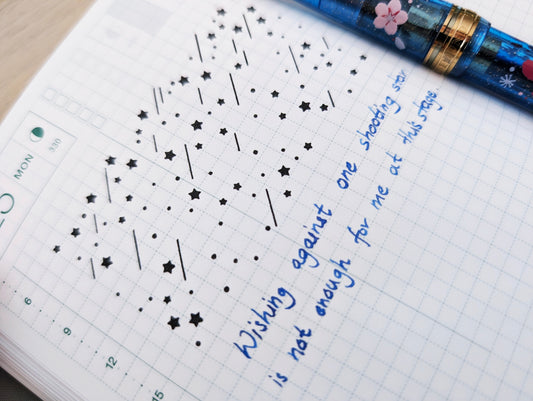 MON
330
6
9
12
15
Wishing against one shooting star
is not enough for me at this stage.